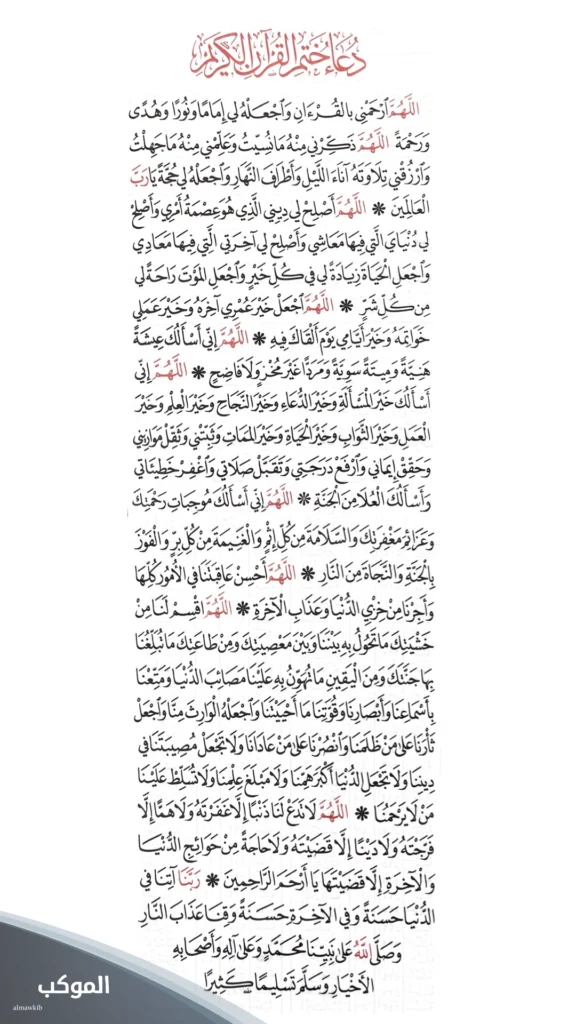 دُعَاءُ خَتْمِ القُرْآنِ الكَرِيمِ
اللَّهُمَّ ارْحَمْنِي بِالقُرْءَانِ وَاجْعَلْهُ لِي إِمَامًا وَنُورًا وَهُدًى
وَرَحْمَةً اللَّهُمَّ ذَكِّرْنِي مِنْهُ مَا نُسِّيتُ وَعَلِّمْنِي مِنْهُ مَا جَهِلْتُ
وَارْزُقْنِي تِلَاوَتَهُ آنَاءَ اللَّيْلِ وَأَطْرَافَ النَّهَارِ وَاجْعَلْهُ لِي حُجَّةً يَا رَبَّ
الْعَالَمِينَ * اللَّهُمَّ أَصْلِحْ لِي دِينِي الَّذِي هُوَ عِصْمَةُ أَمْرِي وَأَصْلِحْ
لِي دُنْيَايَ الَّتِي فِيهَا مَعَاشِي وَأَصْلِحْ لِي آخِرَتِي الَّتِي فِيهَا مَعَادِي
وَاجْعَلِ الْحَيَاةَ زِيَادَةً لِي فِي كُلِّ خَيْرٍ وَاجْعَلِ الْمَوْتَ رَاحَةً لِي
مِنْ كُلِّ شَرٍّ * اللَّهُمَّ اجْعَلْ خَيْرَ عُمْرِي آخِرَهُ وَخَيْرَ عَمَلِي
خَوَاتِمَهُ وَخَيْرَ أَيَّامِي يَوْمَ أَلْقَاكَ فِيهِ * اللَّهُمَّ إِنِّي أَسْأَلُكَ عِيشَةً
هَنِيَّةً وَمِيتَةً سَوِيَّةً وَمَرَدًّا غَيْرَ مُخْزٍ وَلَا فَاضِحٍ * اللَّهُمَّ إِنِّي
أَسْأَلُكَ خَيْرَ الْمَسْأَلَةِ وَخَيْرَ الدُّعَاءِ وَخَيْرَ النَّجَاحِ وَخَيْرَ الْعِلْمِ وَخَيْرَ
الْعَمَلِ وَخَيْرَ الثَّوَابِ وَخَيْرَ الْحَيَاةِ وَخَيْرَ الْمَمَاتِ وَثَبِّتْنِي وَثَقِّلْ مَوَازِينِي
وَحَقِّقْ إِيمَانِي وَارْفَعْ دَرَجَتِي وَتَقَبَّلْ صَلَاتِي وَاغْفِرْ خَطِيئَاتِي
وَأَسْأَلُكَ الْعُلَا مِنَ الْجَنَّةِ * اللَّهُمَّ إِنِّي أَسْأَلُكَ مُوجِبَاتِ رَحْمَتِكَ
وَعَزَائِمَ مَغْفِرَتِكَ وَالسَّلَامَةَ مِنْ كُلِّ إِثْمٍ وَالْغَنِيمَةَ مِنْ كُلِّ بِرٍّ وَالْفَوْزَ
بِالْجَنَّةِ وَالنَّجَاةَ مِنَ النَّارِ * اللَّهُمَّ أَحْسِنْ عَاقِبَتَنَا فِي الْأُمُورِ كُلِّهَا
وَأَجِرْنَا مِنْ خِزْيِ الدُّنْيَا وَعَذَابِ الْآخِرَةِ * اللَّهُمَّ اقْسِمْ لَنَا مِنْ
خَشْيَتِكَ مَا تَحُولُ بِهِ بَيْنَنَا وَبَيْنَ مَعْصِيَتِكَ وَمِنْ طَاعَتِكَ مَا تُبَلِّغُنَا
بِهَا جَنَّتَكَ وَمِنَ الْيَقِينِ مَا تُهَوِّنُ بِهِ عَلَيْنَا مَصَائِبَ الدُّنْيَا وَمَتِّعْنَا
بِأَسْمَاعِنَا وَأَبْصَارِنَا وَقُوَّتِنَا مَا أَحْيَيْتَنَا وَاجْعَلْهُ الْوَارِثَ مِنَّا وَاجْعَلْ
ثَأْرَنَا عَلَى مَنْ ظَلَمَنَا وَانْصُرْنَا عَلَى مَنْ عَادَانَا وَلَا تَجْعَلْ مُصِيبَتَنَا فِي
دِينِنَا وَلَا تَجْعَلِ الدُّنْيَا أَكْبَرَ هَمِّنَا وَلَا مَبْلَغَ عِلْمِنَا وَلَا تُسَلِّطْ عَلَيْنَا
مَنْ لَا يَرْحَمُنَا * اللَّهُمَّ لَا تَدَعْ لَنَا ذَنْبًا إِلَّا غَفَرْتَهُ وَلَا هَمًّا إِلَّا
فَرَّجْتَهُ وَلَا دَيْنًا إِلَّا قَضَيْتَهُ وَلَا حَاجَةً مِنْ حَوَائِجِ الدُّنْيَا
وَالْآخِرَةِ إِلَّا قَضَيْتَهَا يَا أَرْحَمَ الرَّاحِمِينَ * رَبَّنَا آتِنَا فِي
الدُّنْيَا حَسَنَةً وَفِي الْآخِرَةِ حَسَنَةً وَقِنَا عَذَابَ النَّارِ
وَصَلَّى اللَّهُ عَلَى نَبِيِّنَا مُحَمَّدٍ وَعَلَى آلِهِ وَأَصْحَابِهِ
الْأَخْيَارِ وَسَلَّمَ تَسْلِيمًا كَثِيرًا
الموكب
almawkib